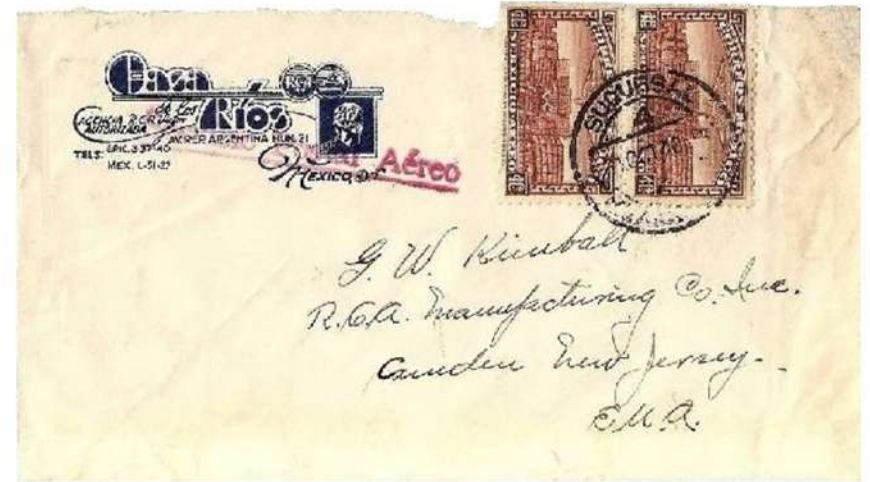 Casa
de los
Ríos
AGENCIA R.C.A. VICTOR
AUTORIZADA
RER ARGENTINA NUM. 21
TELS. ERIC. 3-37-40
MEX. L-51-27
MEXICO, D.F.
Aéreo
SUCURSAL
A
G. W. Kimball
R.C.A. Manufacturing Co. Inc.
Camden New Jersey.
E.U.A.